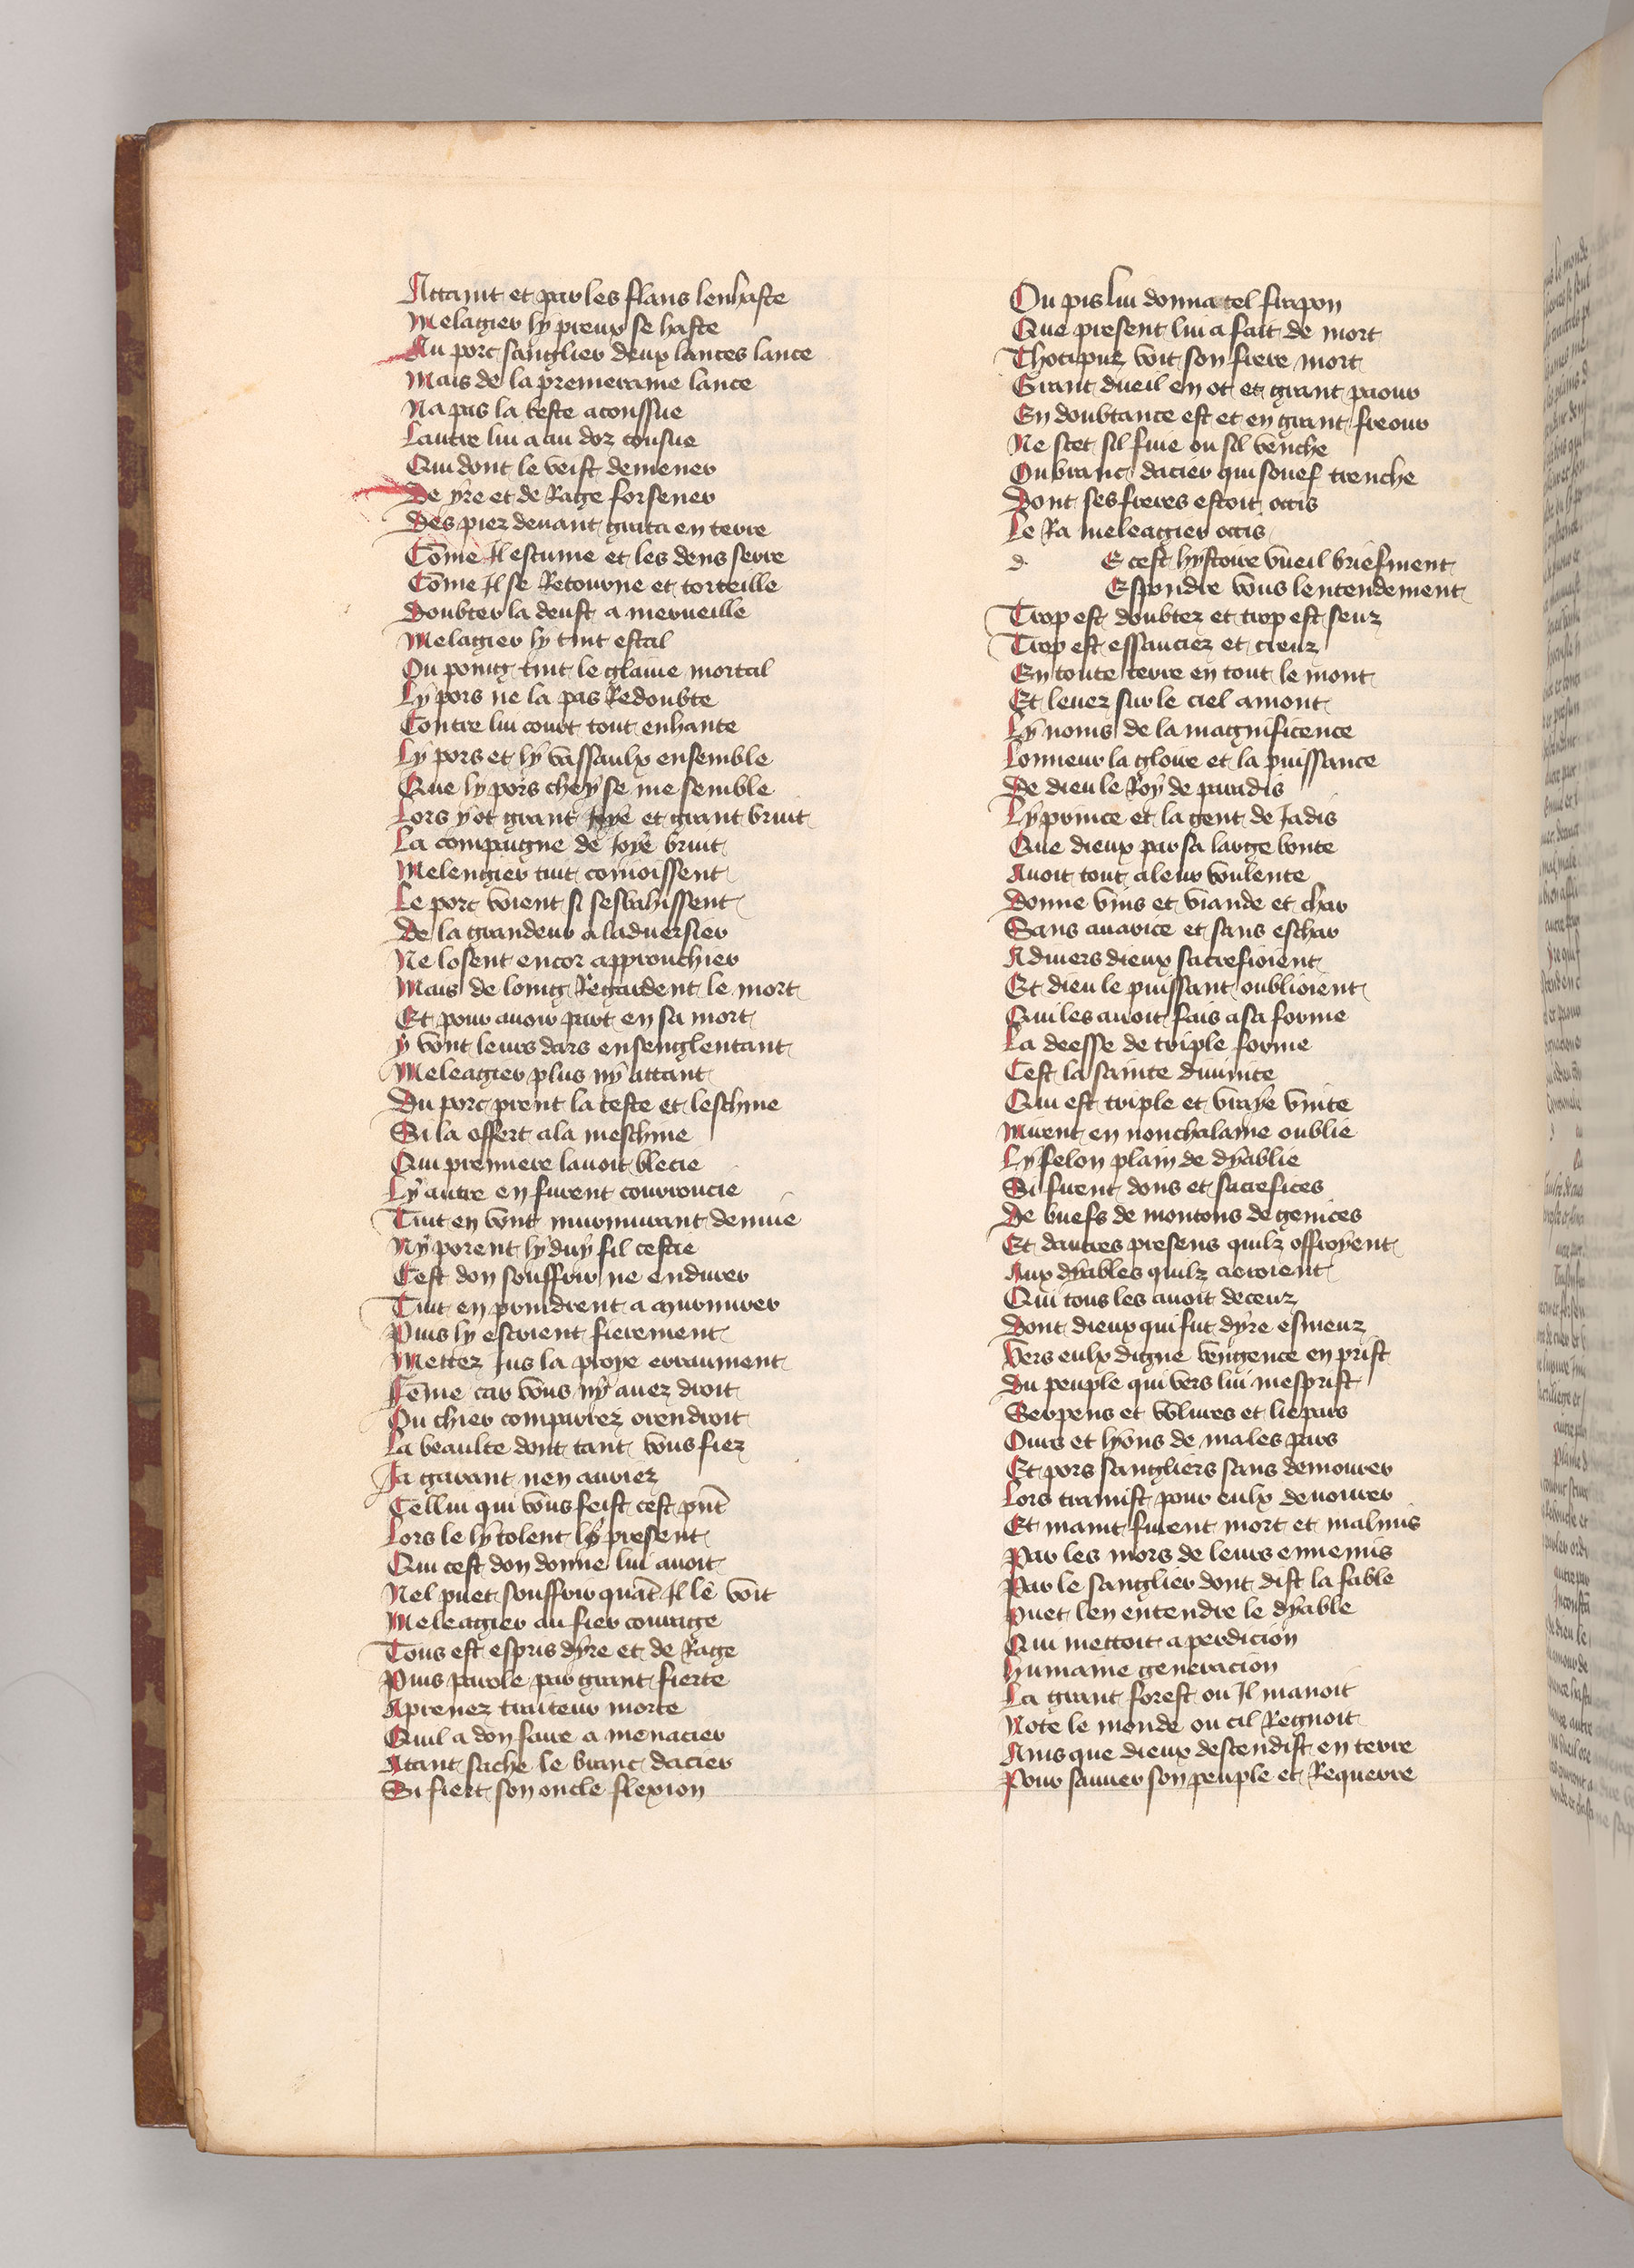 Attaint et par les flans lenhaste
Melagier ly preux se haste
Au porc sanglier deux lances lance
Mais de la premeraine lance
Na pas la beste aconssue
Lautre lui a au doz cousue
Qui dont le veist demener
De yre et de Rage forsener
Des piez devant grata en terre
Cōme Il escume et les dens serre
Cōme Il se Retourne et torteille
Doubter la deust a merveille
Melagier ly tint estal
Ou poing tint le glaive mortal
Ly pors ne la pas Redoubte
Contre lui court tout enhante
Ly pors et ly vassaulx ensemble
Que ly pors cheyse me semble
Lors y ot grant Joye et grant bruit
La compaigne de Joye bruit
Meleagier tuit conioissent
Le porc voient si sesbahissent
De la grandeur a ladversier
Ne losent encor approuchier
Mais de loing Regardent le mort
Et pour avoir part en sa mort
y vont leurs dars ensenglentant
Meleagier plus ny attant
Du porc prent la teste et leschine
Si la offert a la meschine
Qui premiere lavoit blecie
Ly autre en furent courroucie
Tuit en vont murmurant denuie
Ny porent ly duy fil cestie
Cest don souffrir ne endurer
Tuit en prindrent a murmurer
Puis ly escrient fierement
Mettez Jus la proye erraument
Fēme car vous ny avez droit
Ou chier comparrez orendroit
La beaulte dont tant vous fiez
Ja garant nen auriez
Cellui qui vous feist cest pn̄t
Lors le ly tolent ly present
Qui cest don donne lui avoit
Nel puet souffrir quāt Il le voit
Meleagier au fier courage
Tous est espris dyre et de Rage
Puis parole par grant fierte
Aprenez traiteur morte
Quil a don faire a menacier
Atant sache le branc dacier
Si fiert son oncle flexion
Ou pis lui donna tel frapon
Que present lui a fait de mort
Thoxipuz voit son frere mort
Grant dueil en ot et grant paour
En doubtance est et en grant freour
Ne scet sil fuie ou sil venche
Ou branc dacier qui souef trenche
Dont ses freres estoit occis
Le Ra meleagier occis
d E cest hystoire vueil briefment
Espondre vous lentendement
Trop est doubtez et trop est seuz
Trop est essauciez et creuz
En toute terre en tout le mont
Et levez sur le ciel amont
Ly noms de la magnificence
Lonneur la gloire et la puissance
De dieu le Roy de paradis
Ly prince et la gent de Jadis
Que dieux par sa large bonte
Avoit tout a leur voulente
Donne vins et viande et char
Sans avarice et sans eschar
A divers dieux sacrefioient
Et dieu le puissant oublioient
Qui les avoit fais a sa forme
La deesse de triple forme
Cest la sainte divinite
Qui est triple et vraye unite
Mirent en nonchalame oublie
Ly felon plain de dyablie
Si firent dons et sacrefices
De buefs de moutons de genices
Et dautres presens quilz offroyent
Aux dyables quilz creroient
Qui tous les avoit deceuz
Dont dieux qui fut dyre esmeuz
Vers eulx digne vengence en prist
Du peuple qui vers lui mesprist
Serpens et volures et liepars
Ours et lyons de males pars
Et pors sangliers sans demourer
Lors tramist pour eulx devourer
Et maint furent mort et malmis
Par les mors de leurs ennemis
Par le sanglier dont dist la fable
Puet len entendre le dyable
Qui mettoit a perdicion
Humaine generacion
La grant forest ou Il manoit
Note le monde ou cil Regnoit
Ains que dieux descendist en terre
Pour sauver son peuple et Requerre